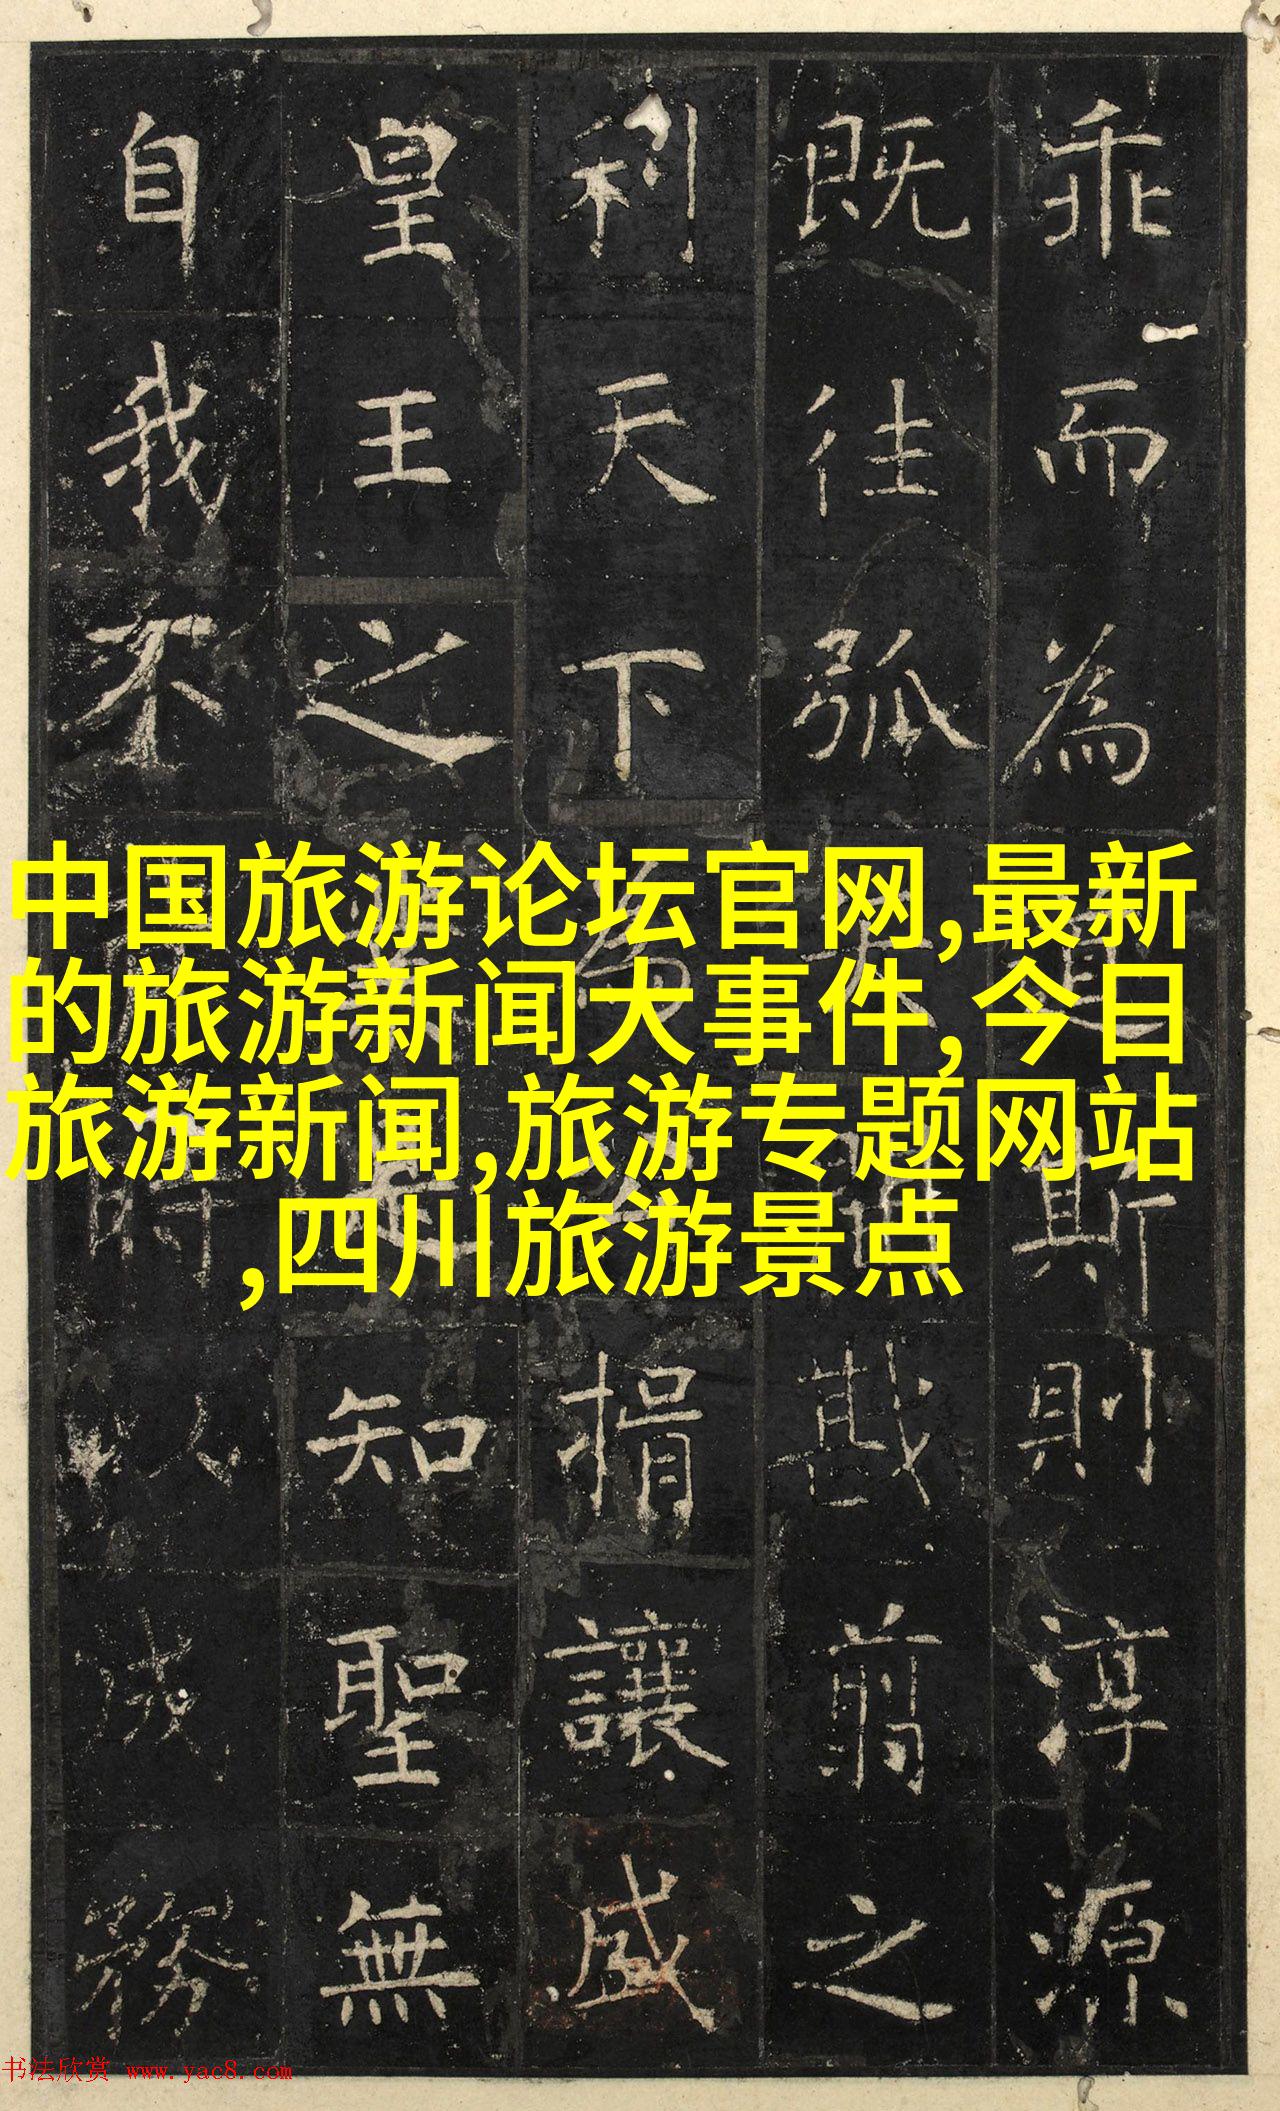 乖而為道斯則淳源
既往弧戡翦之
利天下為捐讓盛
皇王之知聖無
自我不時以成務
中国旅游论坛官网,最新
的旅游新闻大事件,今日
旅游新闻,旅游专题网站
,四川旅游景点
书法欣赏 www.yac8.com